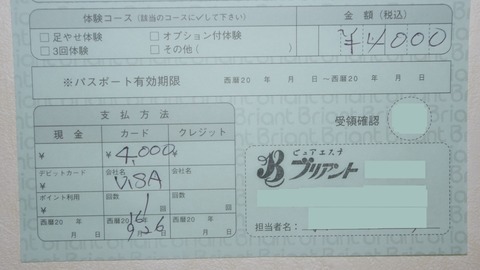 体験コース(該当のコースに✓して下さい)
金額(税込)
□足やせ体験 □オプション付体験
□3回体験 □その他( )
¥4000
※パスポート有効期限 西暦20 年 月 日 ～西暦20 年 月 日
支払方法
現金 カード クレジット
¥ ¥4,000 ¥
デビットカード 会社名 会社名
¥ VISA
ポイント利用 回数 回数
¥ 1 回 回
西暦20 年 西暦2016年 西暦20 年
月 日 9月26日 月 日
受領確認
ピュアエステ
ブリアント
担当者名:
Briant